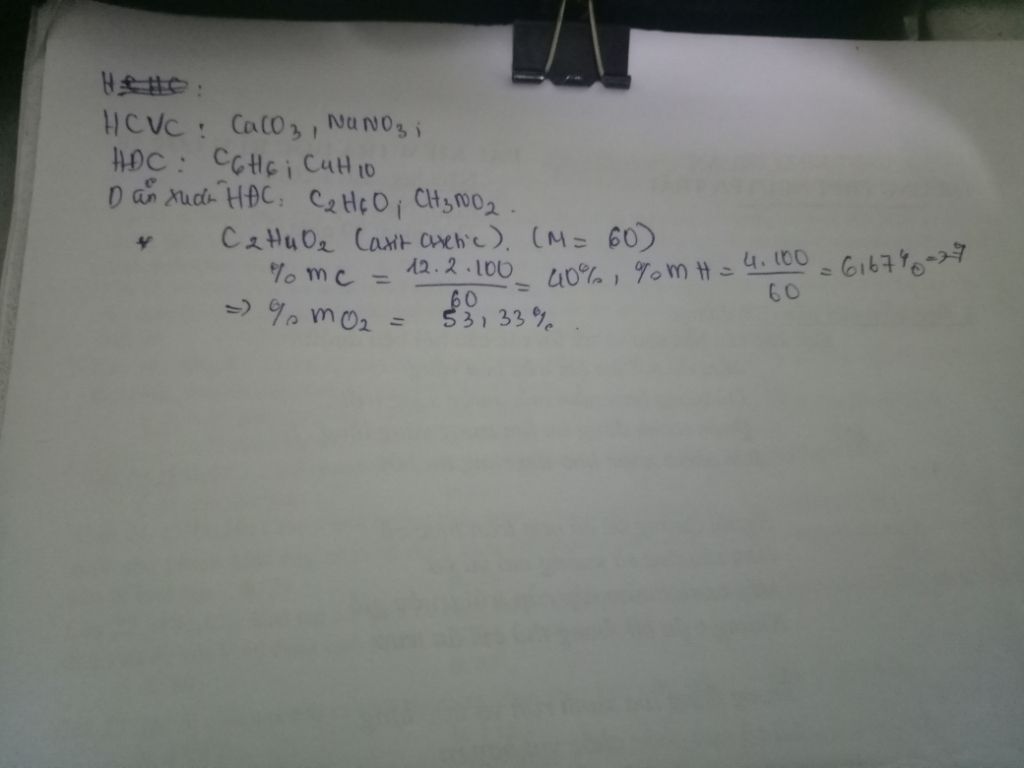 HCVC: CaCO3, NaNO3;
HĐC: C6H6; C4H10
Dẫn xuất HĐC: C2H6O; CH3NO2.
* C2H4O2 (axit axetic). (M = 60)
%mC = 12.2.100/60 = 40%, %mH = 4.100/60 = 6,67%
=> %mO2 = 53,33%.